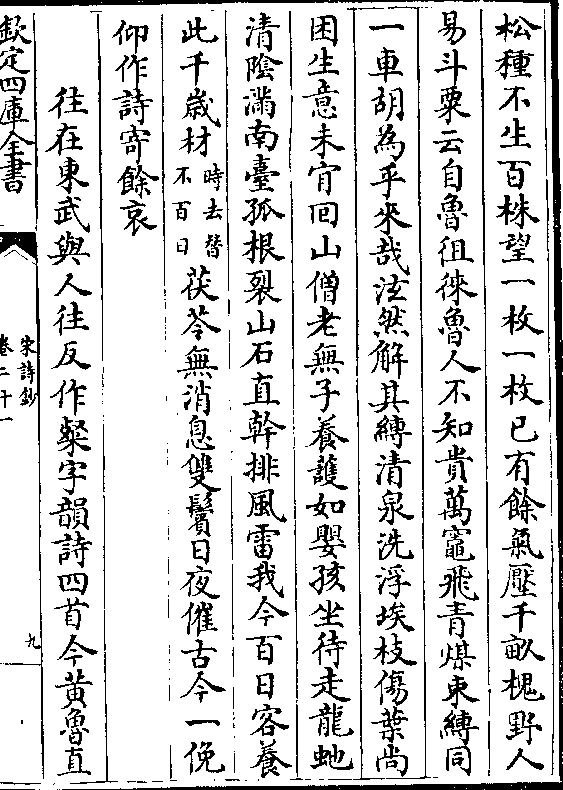 松種不生百株望一枚一枚已有餘氣壓千畝槐野人
易斗粟云自魯徂徠魯人不知貴萬竈飛青煤束縛同
一車胡為乎來哉泫然解其縛清泉洗浮埃枝傷葉尚
困生意未肯回山僧老無子養護如嬰孩坐待走龍虵
清陰滿南臺孤根裂山石直幹排風雷我今百日客養
此千歳材時去替不百日茯苓無消息雙鬢日夜催古今一俛
仰作詩寄餘哀
往在東武與人往反作粲字韻詩四首今黄魯直
欽定四庫全書
宋詩鈔
卷二十一
九